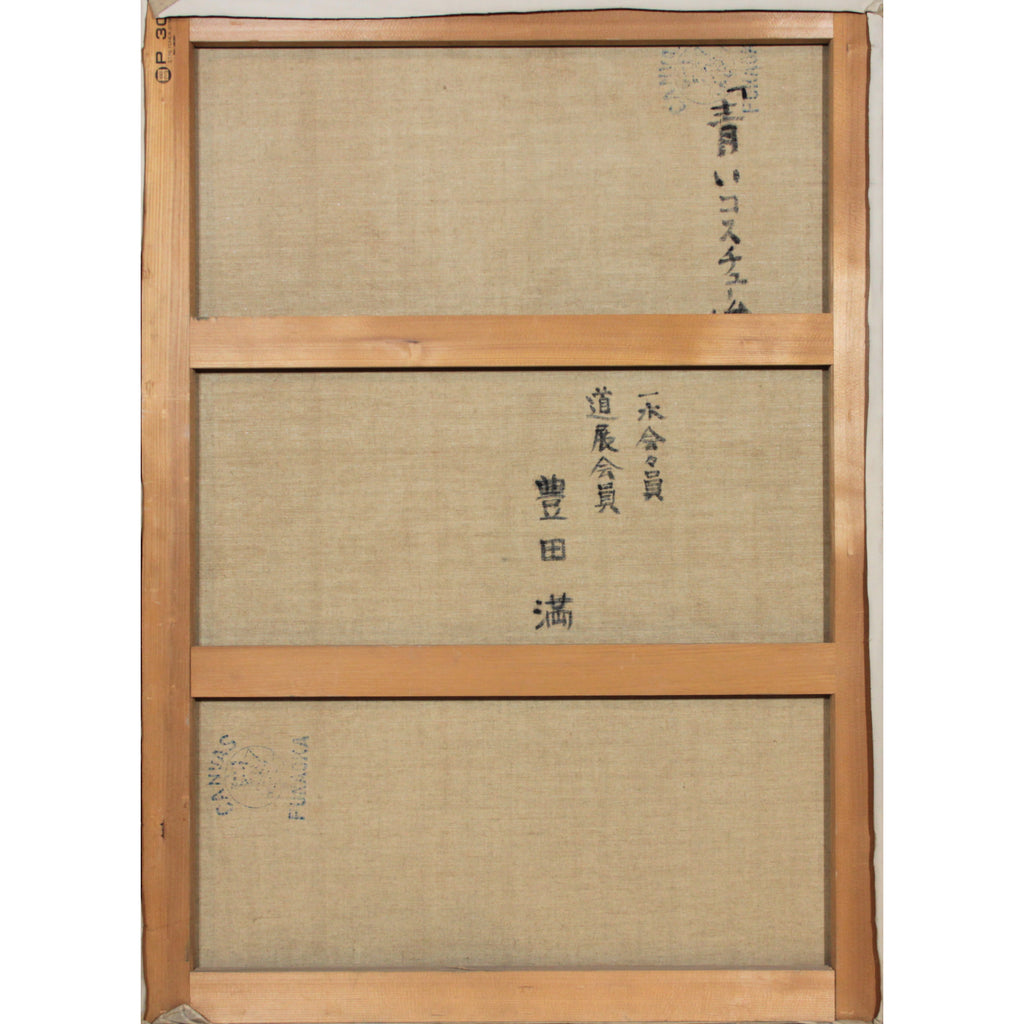 「青いコスチュー
一水会々員
道展会員
豊田満
P 30
CANVAS
FUNAOKA
CANVAS
FUNAOKA